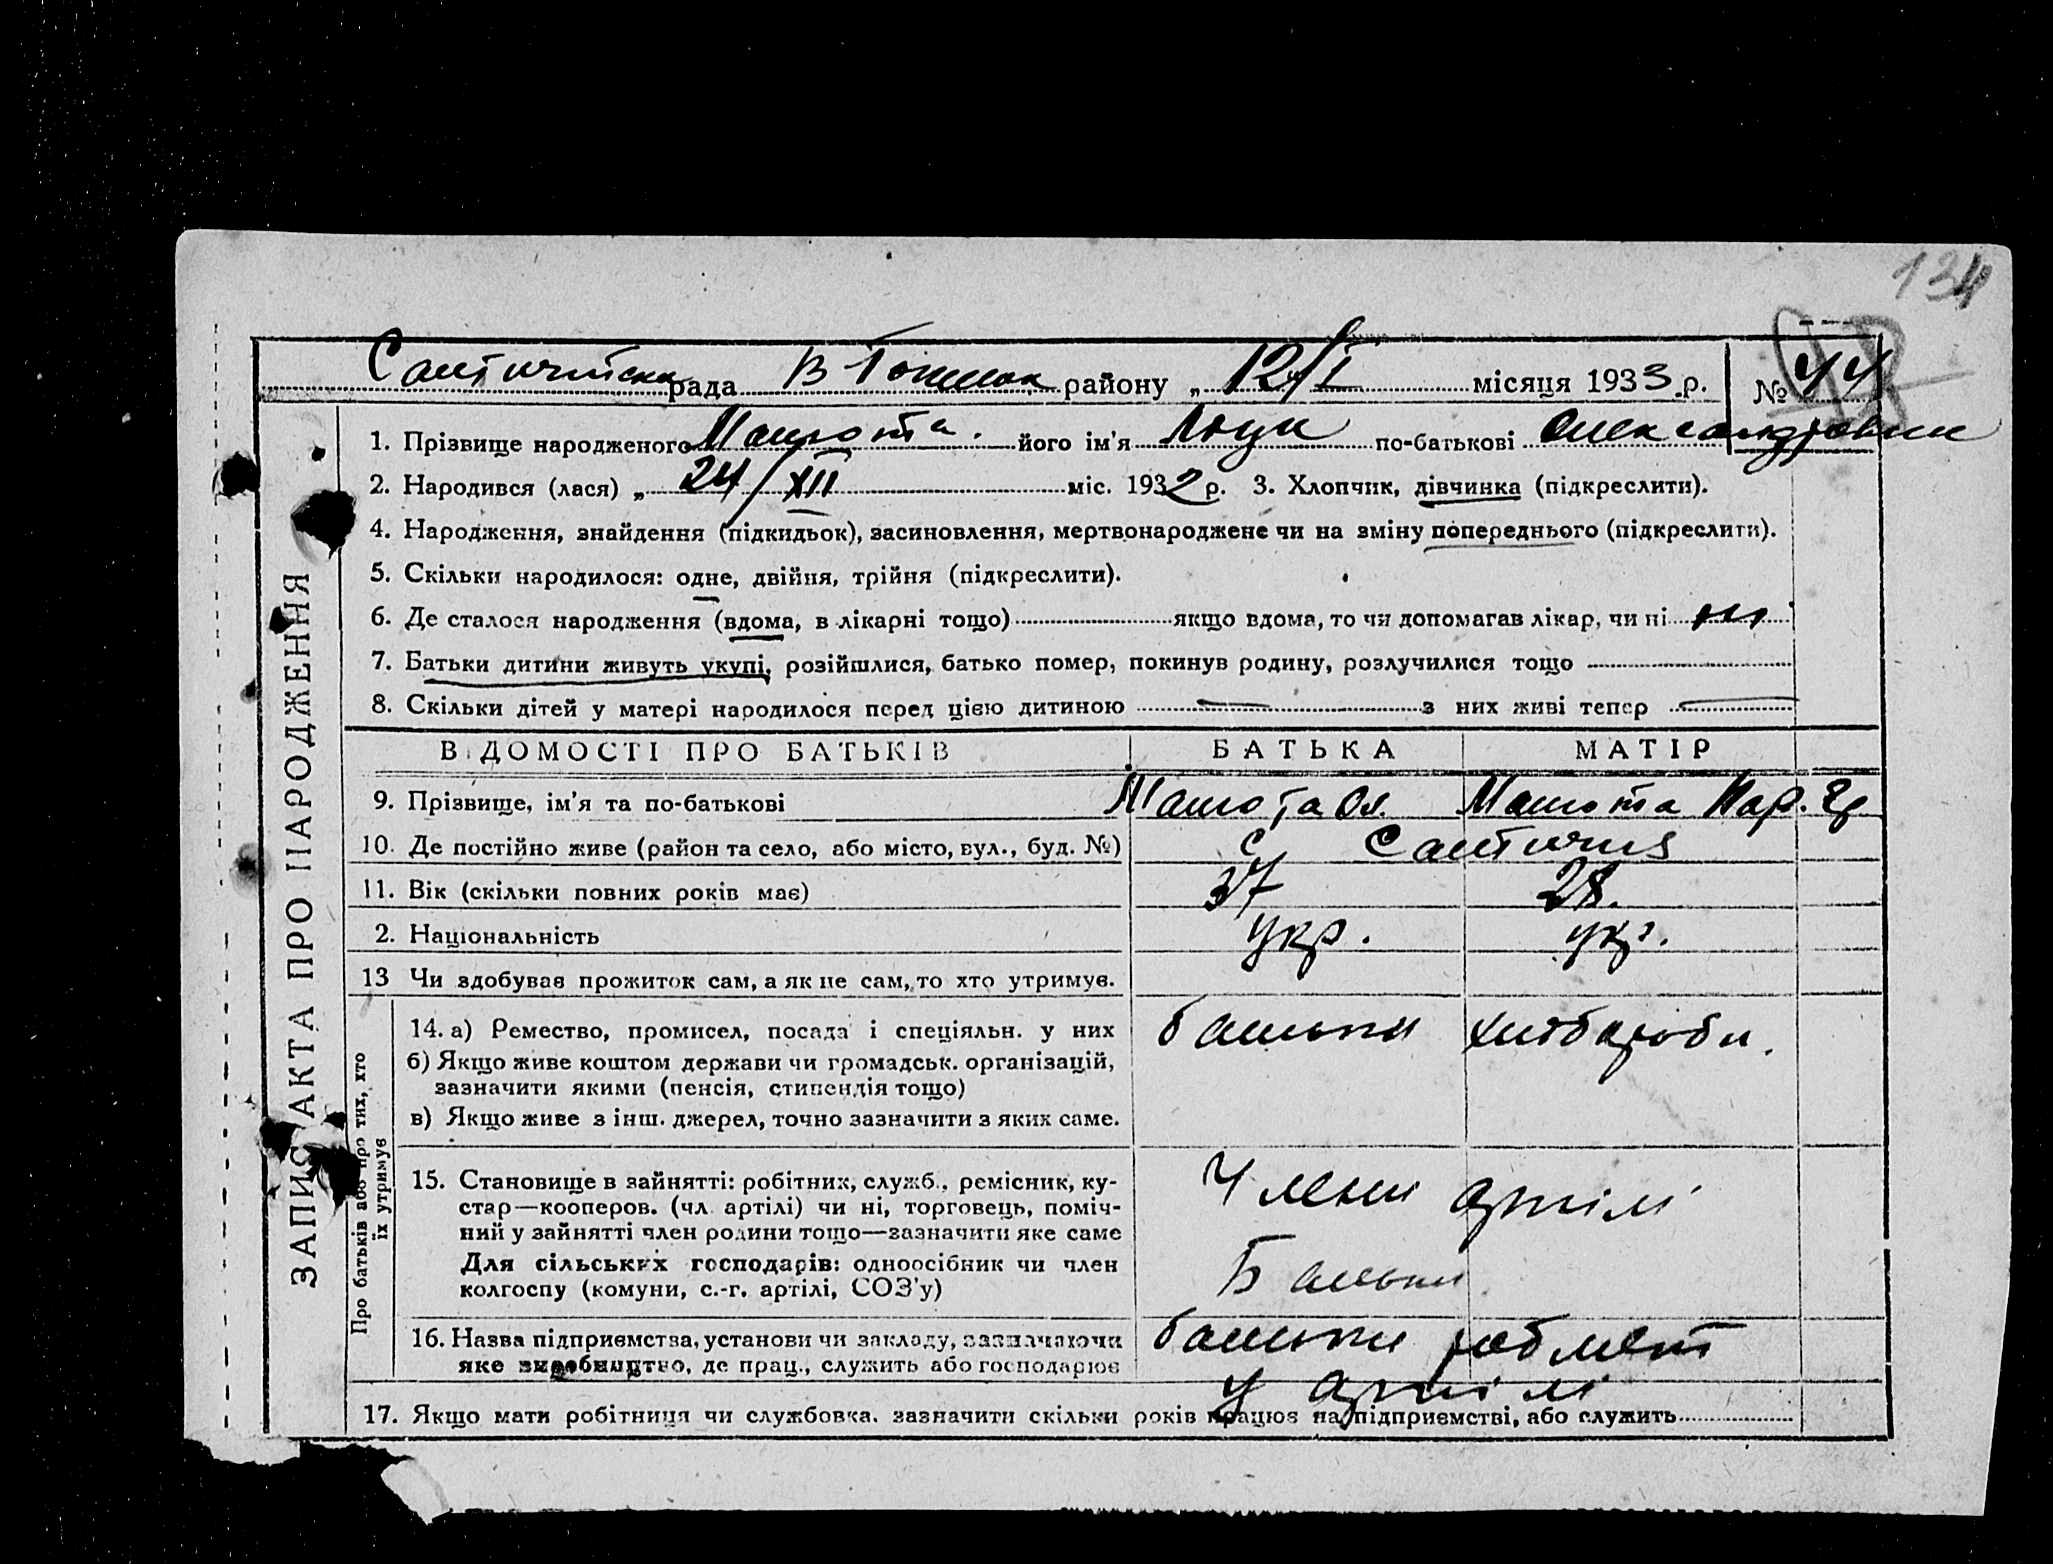 134
рада В Токмак району „ 12/I місяця 1933 р. № 44
1. Прізвище народженого Машота його ім'я Люци по-батькові Олександровни
2. Народився (лася) „ 24/XII міс. 1932 р. 3. Хлопчик, дівчинка (підкреслити).
4. Народження, знайдення (підкидьок), засиновлення, мертвонароджене чи на зміну попереднього (підкреслити).
5. Скільки народилося: одне, двійня, трійня (підкреслити).
6. Де сталося народження (вдома, в лікарні тощо) якщо вдома, то чи допомагав лікар, чи ні ні
7. Батьки дитини живуть укупі, розійшлися, батько помер, покинув родину, розлучилися тощо
8. Скільки дітей у матері народилося перед цією дитиною — з них живі тепер —
ВІДОМОСТІ ПРО БАТЬКІВ БАТЬКА МАТІР
9. Прізвище, ім'я та по-батькові Машота Ол. Машота Мар. Гр
10. Де постійно живе (район та село, або місто, вул., буд. №) с
11. Вік (скільки повних років має) 37 28.
2. Національність укр. укр.
13 Чи здобував прожиток сам, а як не сам, то хто утримує.
14. а) Ремество, промисел, посада і спеціяльн. у них батьки хлібороби.
б) Якщо живе коштом держави чи громадськ. організацій,
зазначити якими (пенсія, стипендія тощо)
в) Якщо живе з інш. джерел, точно зазначити з яких саме.
15. Становище в зайнятті: робітник, служб., ремісник, ку-
стар—кооперов. (чл. артілі) чи ні, торговець, поміч- Члени артілі
ний у зайнятті член родини тощо—зазначити яке саме
Для сільських господарів: одноосібник чи член Батьки
колгоспу (комуни, с.-г. артілі, СОЗ'у)
16. Назва підприємства, установи чи закладу, зазначаючи батьки роблют
яке виробництво, де прац., служить або господарює у артілі
17. Якщо мати робітниця чи службовка, зазначити скільки років працює на підприємстві, або служить
ЗАПИС АКТА ПРО НАРОДЖЕННЯ
Про батьків або про тих, хто
їх утримує